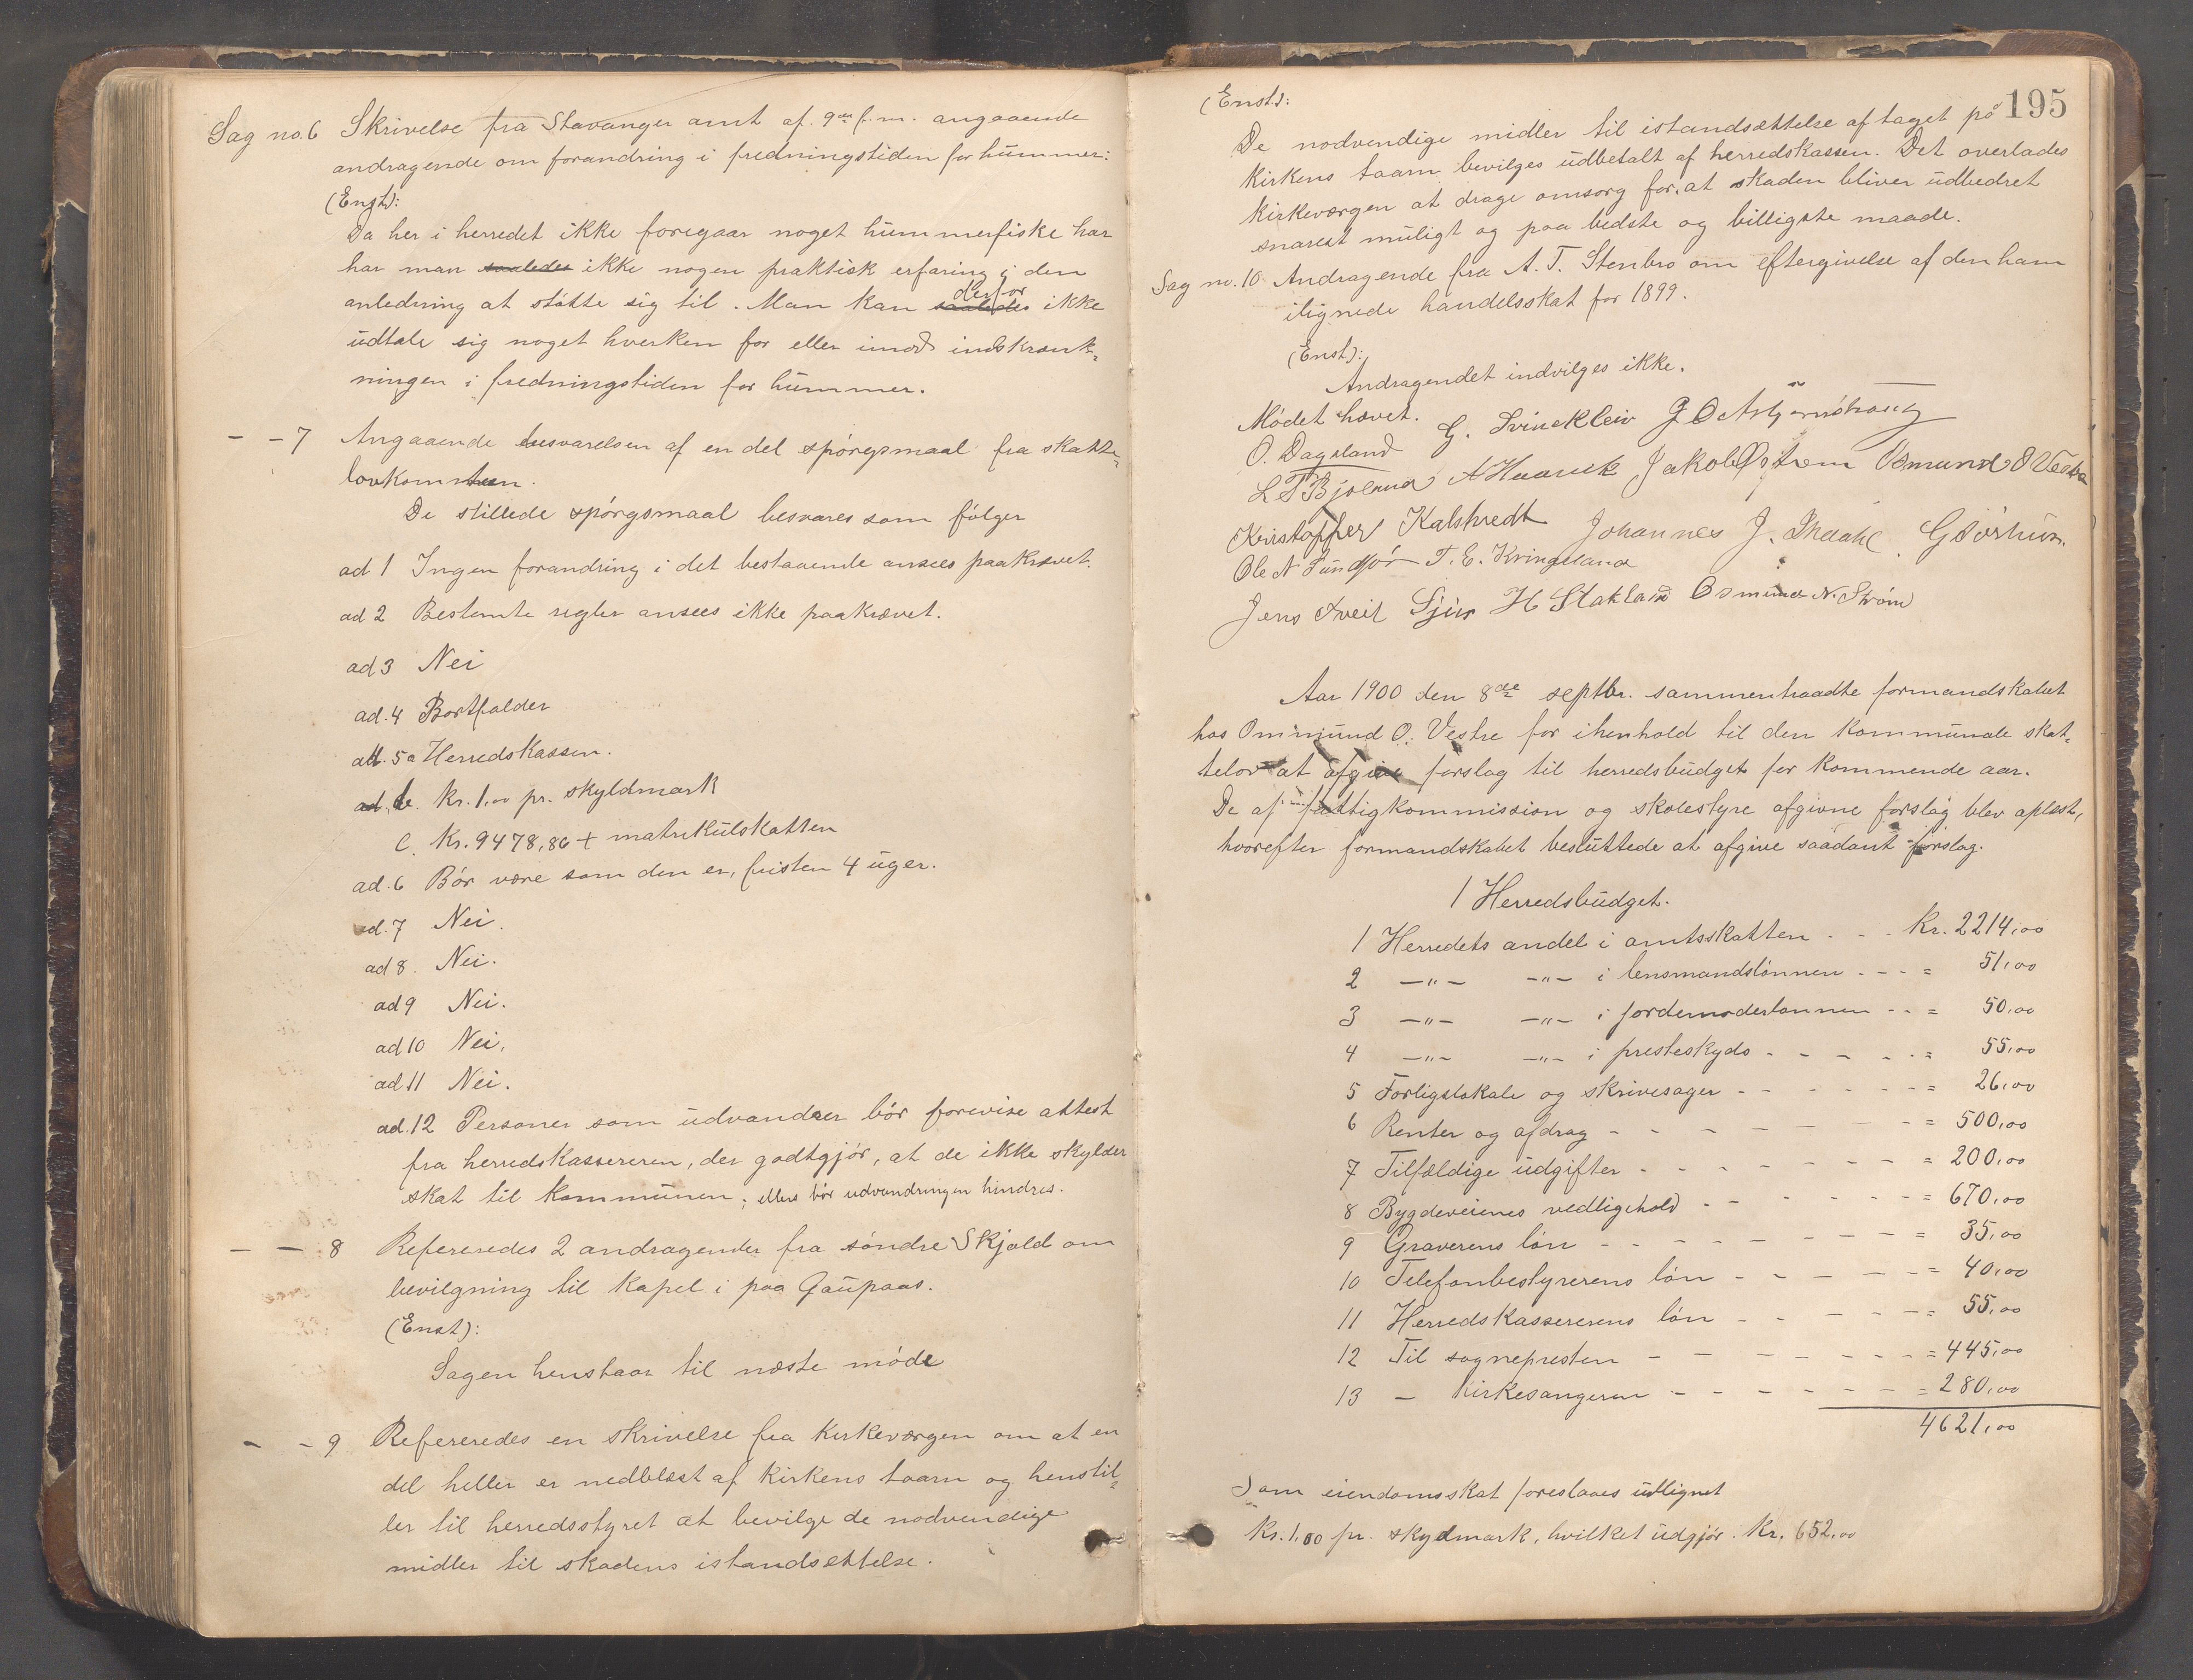 Sag no. 6 Skrivelse fra Stavanger amt af 9de f.m. angaaende
andragende om forandring i fredningstiden for hummer:
(Enst):
Da her i herredet ikke foregaar noget hummerfiske har
har man saaledes ikke nogen praktisk erfaring i den
anledning at støtte sig til. Man kan saaledes derfor ikke
udtale sig noget hverken for eller imod indskrænk-
ningen i fredningstiden for hummer.
— — 7 Angaaende besvarelsen af en del spørgsmaal fra skatte-
lovkomiteen.
De stillede spørgsmaal besvares som følger
ad 1 Ingen forandring i det bestaaende ansees paakrævet.
ad 2 Bestemte regler ansees ikke paakrævet.
ad 3 Nei
ad. 4 Bortfalder
ad. 5 a Herredskassen.
ad. b. kr. 1,00 pr. skyldmark
c. Kr. 9478,86 + matrikulskatten
ad. 6 Bør være som den er, fristen 4 uger.
ad. 7 Nei.
ad 8. Nei.
ad 9 Nei.
ad 10 Nei.
ad 11 Nei.
ad. 12 Personer som udvandrer bør forevise attest
fra herredskassereren, der godtgjør, at de ikke skylder
skat til kommunen; ellers bør udvandringen hindres.
— — 8 Refereredes 2 andragender fra søndre Skjold om
bevilgning til kapel i paa Gaupaas.
(Enst):
Sagen henstaar til næste møde
— — 9 Refereredes en skrivelse fra kirkeværgen om at en
del heller er nedblæst af kirkens taarn og henstil-
ler til herredsstyret at bevilge de nødvendige
midler til skadens istandsættelse.
195
(Enst):
De nødvendige midler til istandsættelse af taget på
kirkens taarn bevilges udbetalt af herredskassen. Det overlades
kirkeværgen at drage omsorg for, at skaden bliver udbedret
snarest muligt og paa bedste og billigste maade.
Sag no. 10. Andragende fra A. T. Stenbro om eftergivelse af den ham
ilignede handelsskat for 1899.
(Enst):
Andragendet indvilges ikke.
Mødet hævet. G. Svinekleiv
O. Dagsland
Jakob Østrem Osmund O
Kristoffer Kalstvedt Johannes J.
Ole N T. E. Kvingeland
Jens Tveit Sjur H Stakland Osmund N. Strøm
Aar 1900 den 8de septbr. sammentraadte formandskabet
hos Ommund O. Vestre for ihenhold til den kommunale skat-
telov at afgive forslag til herredsbudget for kommende aar.
De af fattigkommission og skolestyre afgivne forslag blev oplæst,
hvorefter formandskabet besluttede at afgive saadant forslag.
1 Herredsbudget.
1 Herredets andel i amtsskatten - - - Kr. 2214,00
2 —„— —„— i lensmandslønnen - - - = 51,00
3 —„— —„— i jordemoderlønnen - - = 50,00
4 —„— —„— i presteskyds - - - - - = 55,00
5 Forligslokale og skrivesager - - - - - = 26,00
6 Renter og afdrag - - - - - - - = 500,00
7 Tilfældige udgifter - - - - - - - = 200,00
8 Bygdeveienes vedligehold - - - - - - = 670,00
9 Graverens løn - - - - - - - - = 35,00
10 Telefonbestyrerens løn - - - - - - = 40,00
11 Herredskassererens løn - - - - - = 55,00
12 Til sognepresten - - - - - - - = 445,00
13 — kirkesangeren - - - - - - - = 280,00
4621,00
Som eiendomsskat foreslaaes udlignet
Kr. 1,00 pr. skydmark, hvilket udgjør: Kr. 652,00